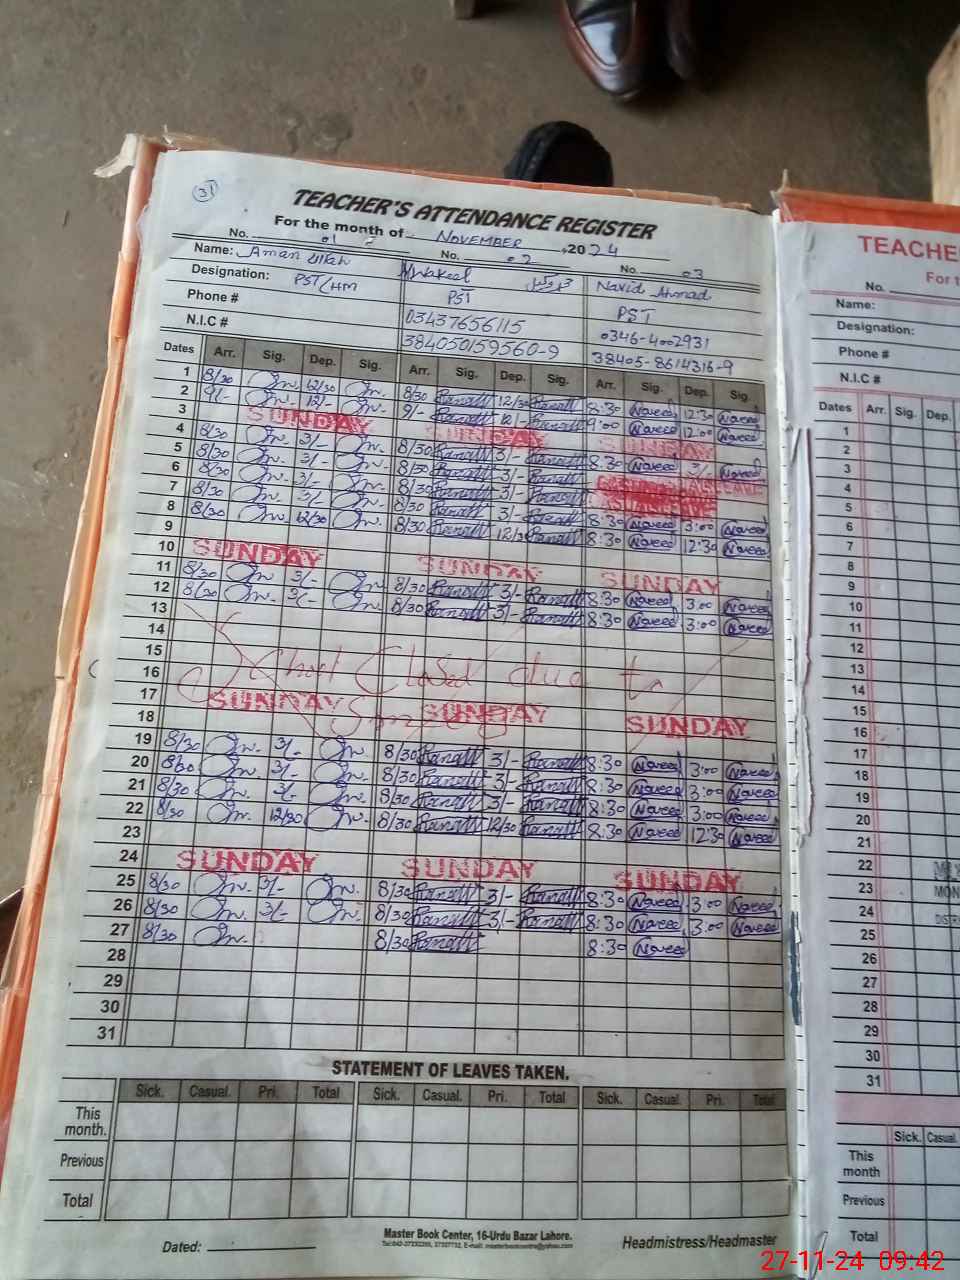 31
TEACHER'S ATTENDANCE REGISTER
For the month of NOVEMBER ,2024
No. 01 No. 02 No. 03
Name: Aman ullah M Wakeel Navid Ahmad
Designation: PST/HM PST PST
Phone # 03437656115 0346-4002931
N.I.C # 384050159560-9 38405-8614316-9
Dates Arr. Sig. Dep. Sig. Arr. Sig. Dep. Sig. Arr. Sig. Dep. Sig.
1 8/30 12/30 8/30 12/30 8:30 Naveed 12:30 Naveed
2 9/- 12/- 9/- 12/- 9:00 Naveed 12:00 Naveed
3 SUNDAY SUNDAY SUNDAY
4 8/30 3/- 8/30 3/- 8:30 Naveed 3/- Naveed
5 8/30 3/- 8/30 3/-
6 8/30 3/- 8/30 3/-
7 8/30 3/- 8/30 3/- 8:30 Naveed 3:00 Naveed
8 8/30 12/30 8/30 12/30 8:30 Naveed 12:30 Naveed
9
10 SUNDAY SUNDAY SUNDAY
11 8/30 3/- 8/30 3/- 8:30 Naveed 3:00 Naveed
12 8/30 3/- 8/30 3/- 8:30 Naveed 3:00 Naveed
13
14
15 School Closed due to
16
17 SUNDAY SUNDAY SUNDAY
18 Smog
19 8/30 3/- 8/30 3/- 8:30 Naveed 3:00 Naveed
20 8/30 3/- 8/30 3/- 8:30 Naveed 3:00 Naveed
21 8/30 3/- 8/30 3/- 8:30 Naveed 3:00 Naveed
22 8/30 12/30 8/30 12/30 8:30 Naveed 12:30 Naveed
23
24 SUNDAY SUNDAY SUNDAY
25 8/30 3/- 8/30 3/- 8:30 Naveed 3:00 Naveed
26 8/30 3/- 8/30 3/- 8:30 Naveed 3:00 Naveed
27 8/30 8/30 8:30 Naveed
28
29
30
31
STATEMENT OF LEAVES TAKEN.
Sick. Casual. Pri. Total Sick. Casual. Pri. Total Sick. Casual. Pri. Total
This month.
Previous
Total
Dated:
Master Book Center, 16-Urdu Bazar Lahore.
Headmistress/Headmaster
TEACHE
For t
No.
Name:
Designation:
Phone #
N.I.C #
Dates Arr. Sig. Dep.
1
2
3
4
5
6
7
8
9
10
11
12
13
14
15
16
17
18
19
20
21
22
23 MON
24 DIST
25
26
27
28
29
30
31
Sick. Casual.
This month
Previous
Total
27-11-24 09:42